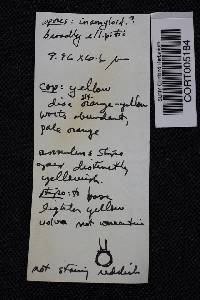 spores: inamyloid?
broadly elliptic
Cap: yellow
disc orange-yellow
warts abundant,
pale orange
annulus & stipe
apex distinctly
yellowish.
stipe: to base
lighter yellow
volva not
not staining reddish
CORT005184